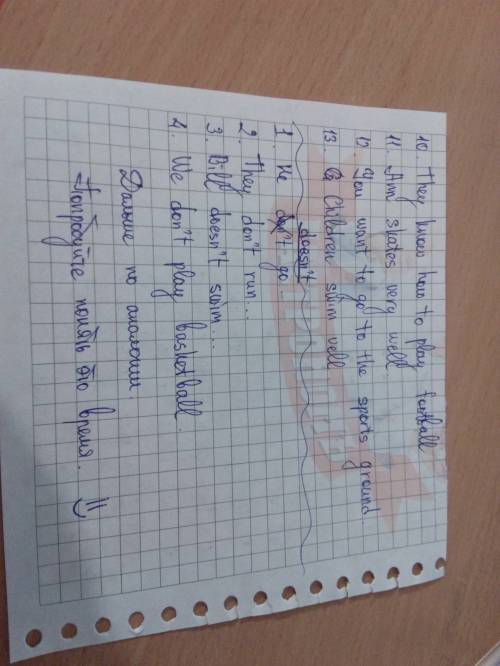 10. They know how to play football
11. Ann skates very well.
12. You want to go to the sports ground.
13. Children swim well
doesn't
1. He go
2. They don't run...
3. Bill doesn't swim...
4. We don't play basketball.
Дальше по аналогии.
Попробуйте понять это время. =)